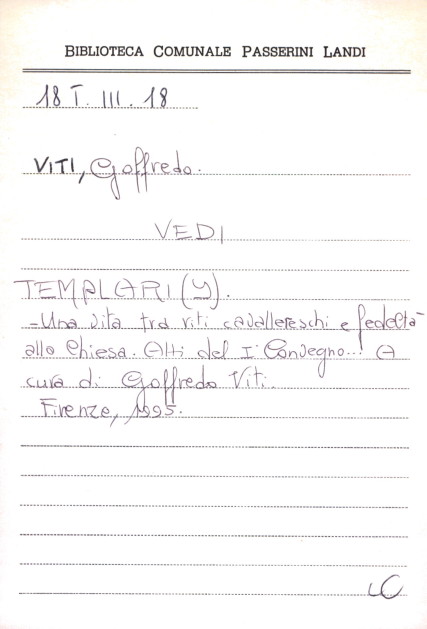 BIBLIOTECA COMUNALE PASSERINI LANDI
18 T. III. 18
VITI, Goffredo.
VEDI
TEMPLARI (I).
- Una vita tra riti cavallereschi e fedeltà
alla Chiesa. Atti del I° Convegno... A
cura di Goffredo Viti.
Firenze, 1995.
LC